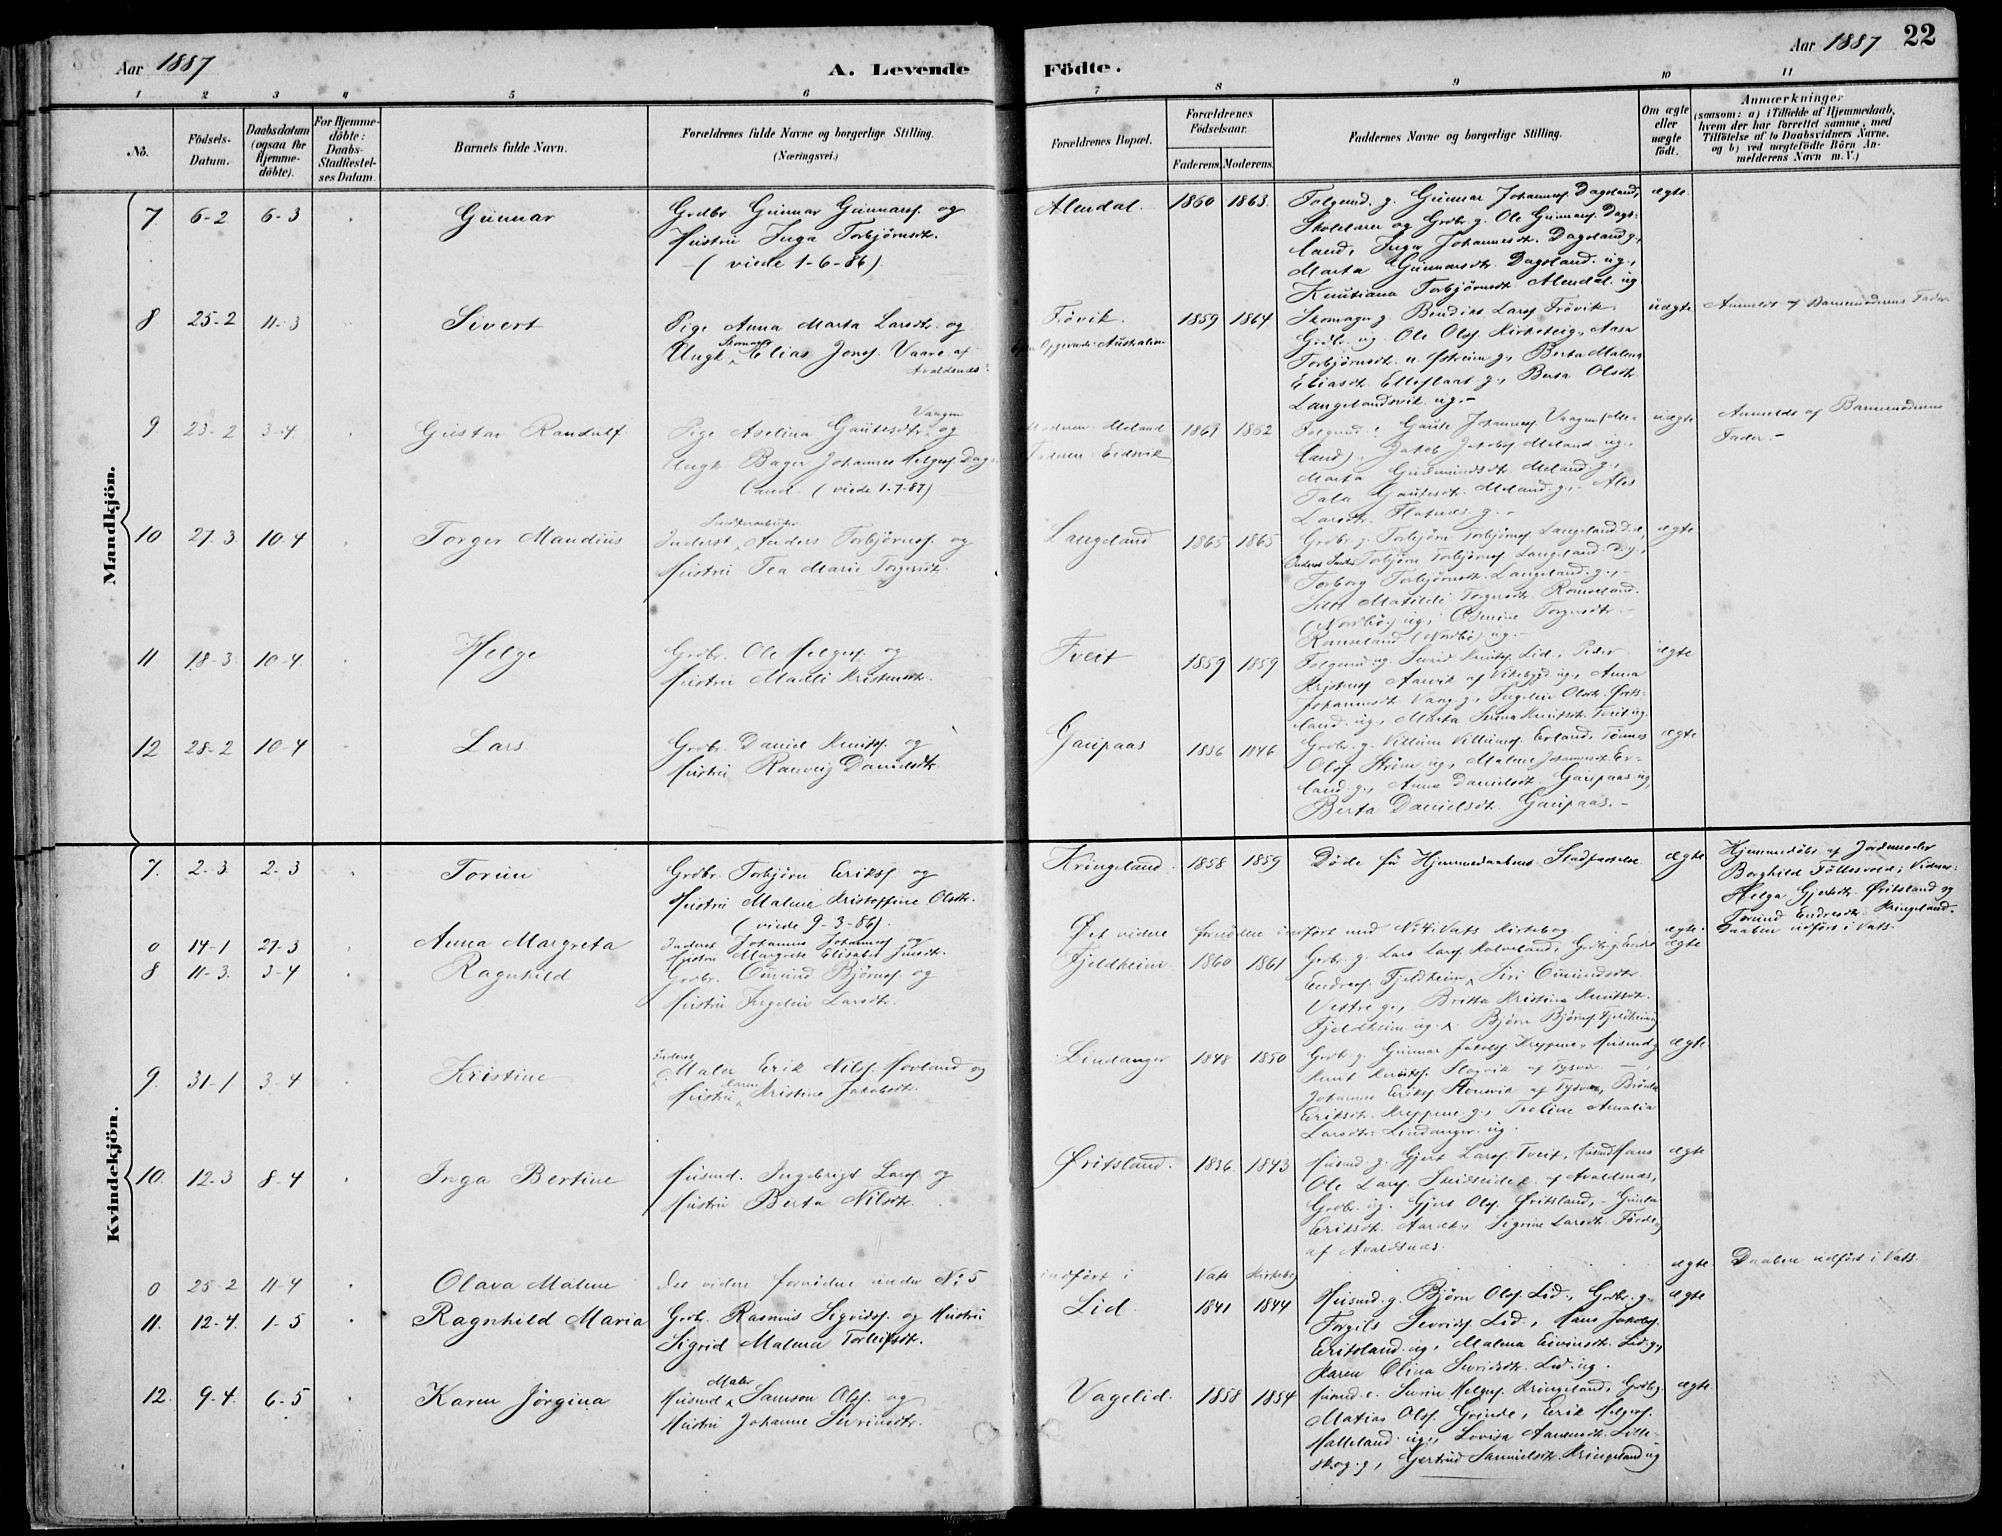 Aar 1887
A. Levende Födte.
Aar 1887 22
1 2 3 4 5 6 7 8 9 10 11
No.
Födsels-Datum.
Daabsdatum (ogsaa for Hjemmedöbte).
For Hjemmedöbte: Daabs-Stadfæstelses Datum.
Barnets fulde Navn.
Forældrenes fulde Navne og borgerlige Stilling. (Næringsvei.)
Forældrenes Bopæl.
Forældrenes Födselsaar.
Faderens. Moderens.
Faddernes Navne og borgerlige Stilling.
Om ægte eller uægte födt.
Anmærkninger
(saasom: a) i Tilfælde af Hjemmedaab, hvem der har forrettet samme, med Tilföielse af to Daabsvidners Navne, og b) ved uægtefödte Börn Anmelderens Navn m. V.)
Mandkjön.
7. 6-2 6-3 Gunnar
Grdbr. Gunnar Gunnars. og
Hustru Inga Torbjørnsdtr.
(viede 1-6-86)
Alendal. 1860 1863
Folgemd. g. Gunnar Johanness. Dagsland,
Skolelærer og Grdbr. g. Ole Gunnars. Dags-
land, Inger Johannesdtr. Dagsland g.,
Marta Gunnarsdtr. Dagsland ug.,
Knutiana Torbjørnsdtr. Alendal. ug
ægte
8 25-2 11-3 Sivert
Pige Anna Marta Larsdtr. og
Ungk. Skomager Elias Jons. Vaare af
Avaldsnes.
Frövik.
Australien
1859 1864
Skomager g. Bendiks Lars. Frövik
Grdbr. ug. Ole Ols. Kirkeleig, Aasa
Torbjørnsdtr. n. Østreim g., Berta Malena
Eliasdtr. g., Berta Olsdtr.
Langelandsvik ug.-
uægte
Anmeldt af Barnemoderens Fader
9. 23-2 3-4 Gustav Randulf
Pige Aselina Gautesdtr. Vaagen og
Ungk. Bager Johannes Helges. Dags-
land (viede 1-7-87)
Moderen: Meland
Faderen: Eidsvik
1862
Gaute Johanness. Vaagen (Me-
land)., Jakob Jakobs. Meland ug.,
Marta Gudmundsdtr. Meland. g.,
Tala Gautesdtr. Meland. g., Ales
Larsdtr. Flatnes g.-
uægte
Anmeldt af Barnemoderens
Fader.-
10 27-3 10-4 Torger Mandius
Inderst Anders Torbjørns. og
Hustru Tea Marie Torgersdtr.
Langeland 1865 1865
Grdbr. g. Torbjørn Torbjørns. Langeland.
Torbjørn Torbjørns. Langeland.
Torborg Torbjørnsdtr. Langeland. g.,-
Matilde Torgersdtr. Rameland.
(Nordbø) ug., Torgersdtr.
Rameland (Nordbø) ug.-
ægte
11 18-3 10-4 Helge
Grdbr. Ole Helges. og
Hustru Madli Kristensdtr.
Tveit 1859 1859
Folgemd. ug. Knuts. Lid, Peder
Kristens. Aarvik af Vikebygd ug., Anna
Johannesdtr. Vaag g., Ingelin Olsdtr. Ørits-
land. ug., Marta Serina Knutsdtr. Tveit ug.
ægte
12 28-2 10-4 Lars
Grdbr. Daniel Knuts. og
Hustru Ranveig Danielsdtr.
Garpaas 1836 1846
Grdbr. g. Villum Villums. Erland, Tønnes
Ols. ug., Malene Johannesdtr. Er-
land. g., Anna Danielsdtr. Garpaas. ug.,
Berta Danielsdtr. Garpaas.-
ægte
Kvindekjön.
7. 2-3 2-3 Torun
Grdbr. Torbjørn Eriks. og
Hustru Malene Kristoffine Olsdtr.
(viede 9-3-86)
Kringeland. 1858 1859
Døde før Hjemmedaabens Stadfæstelse
ægte
Hjemmedøbt af Jordemoder
Borghild Föllesvold; Vidner:
Helga Gjertsdtr. Øritsland og
Torund Endresdtr. Kringeland.
0 14-1 27-3 Anna Margreta
Inderst Johannes Johanness. og
Hustru Margrete Elisabet
Det videre fornødne indført med No 4 i Vats Kirkebog
ægte.
Daaben udført i Vats.
8 11-3 3-4 Ragnhild
Grdbr. Omund Bjørns. og
Hustru Ingelin Larsdtr.
Fjeldheim. 1860 1861
Grdbr. g. Lars Lars. Grdbr. g.
Endres. Fjeldheim, Siri Omundsdtr.
Vestre g., Britta Kristina Knutsdtr.
Fjeldheim ug., Bjørn Bjørns. Fjeldheim ug
ægte
9. 31-1 3-4 Kristine
Inderst Maler Erik Nils. Hovland og
Hustru Karen Kristine Jakobsdtr.
Lindanger 1848 1850
Grdbr. g. Gunnar Jakobs. Kreppene, Husmd g
Knut Knuts. Slogvik af Tysvær
Johannes Eriks. af Tysvær,
Eriksdtr. Kreppene g., Teoline Amalia
Larsdtr. Lindanger. ug.
ægte
10. 12-3 8-4 Inga Bertine
Husmd. Ingebrigt Lars. og
Hustru Berta Nilsdtr.
Øritsland. 1836. 1843
Husmd. g. Gjert Lars. Tveit, Husmd Hans
Ole Lars. af Avaldsnæs,
Grdbr. ug. Gjert Ols. Øritsland,- Gunla
Eriksdtr. Aarek., Sigrine Larsdtr. Førde
af Avaldsnæs.
ægte
0 25-2 11-4 Olava Malene
Det videre fornødne under No 5
indført i Vats Kirkebog
ægte
Daaben udført i Vats.
11. 12-4. 1-5 Ragnhild Maria
Grdbr. Rasmus Sigvids. og Hustru
Sigrid Malena Torleifsdtr.
Lid 1841 1844
Husmd. g. Bjørn Ols. Lid., Grdbr. g.
Torgils Sevrids. Lid, Hans Jakobs.
Eritsland. ug., Malena Eivindsdtr. Lid g.,
Karen Olina Sevridsdtr. Lid ug.
ægte
12. 9-4. 6-5 Karen Jørgina
Husmd Maler Samson Ols. og
Hustru Johanne Sevrinsdtr.
Vagelid. 1858 1854
Husmd. e. Sevrin Helges. Kringeland, Grdbr g.
Matias Ols. Grinde, Erik Helges.
Halleland. ug., Lovisa Aanensdtr. Lille-
skog. g., Gjertrud Samuelsdtr. Kringeland ug
ægte